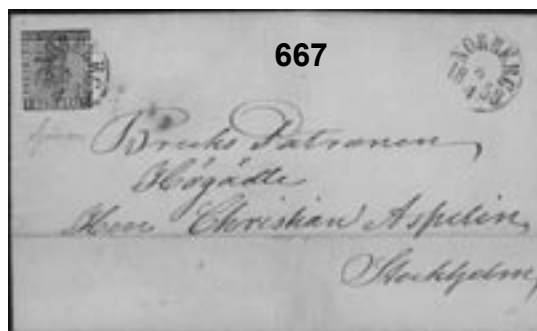 667
NORBERG
Bruks Patronen
Högädle
Herr Christian Aspelin,
Stockholm,